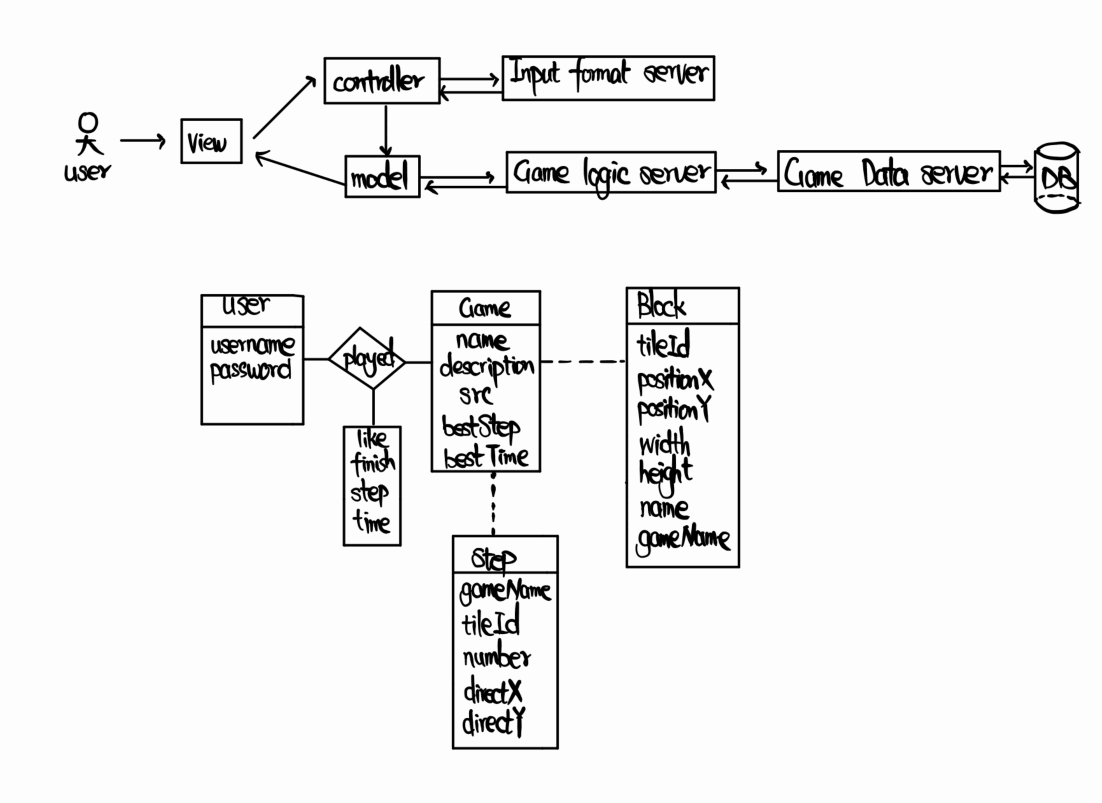 controller
Input format server
user
View
model
Game logic server
Game Data server
DB
user
username
password
played
like
finish
step
time
Game
name
description
src
bestStep
bestTime
Block
tileId
positionX
positionY
width
height
name
gameName
Step
gameName
tileId
number
directX
directY